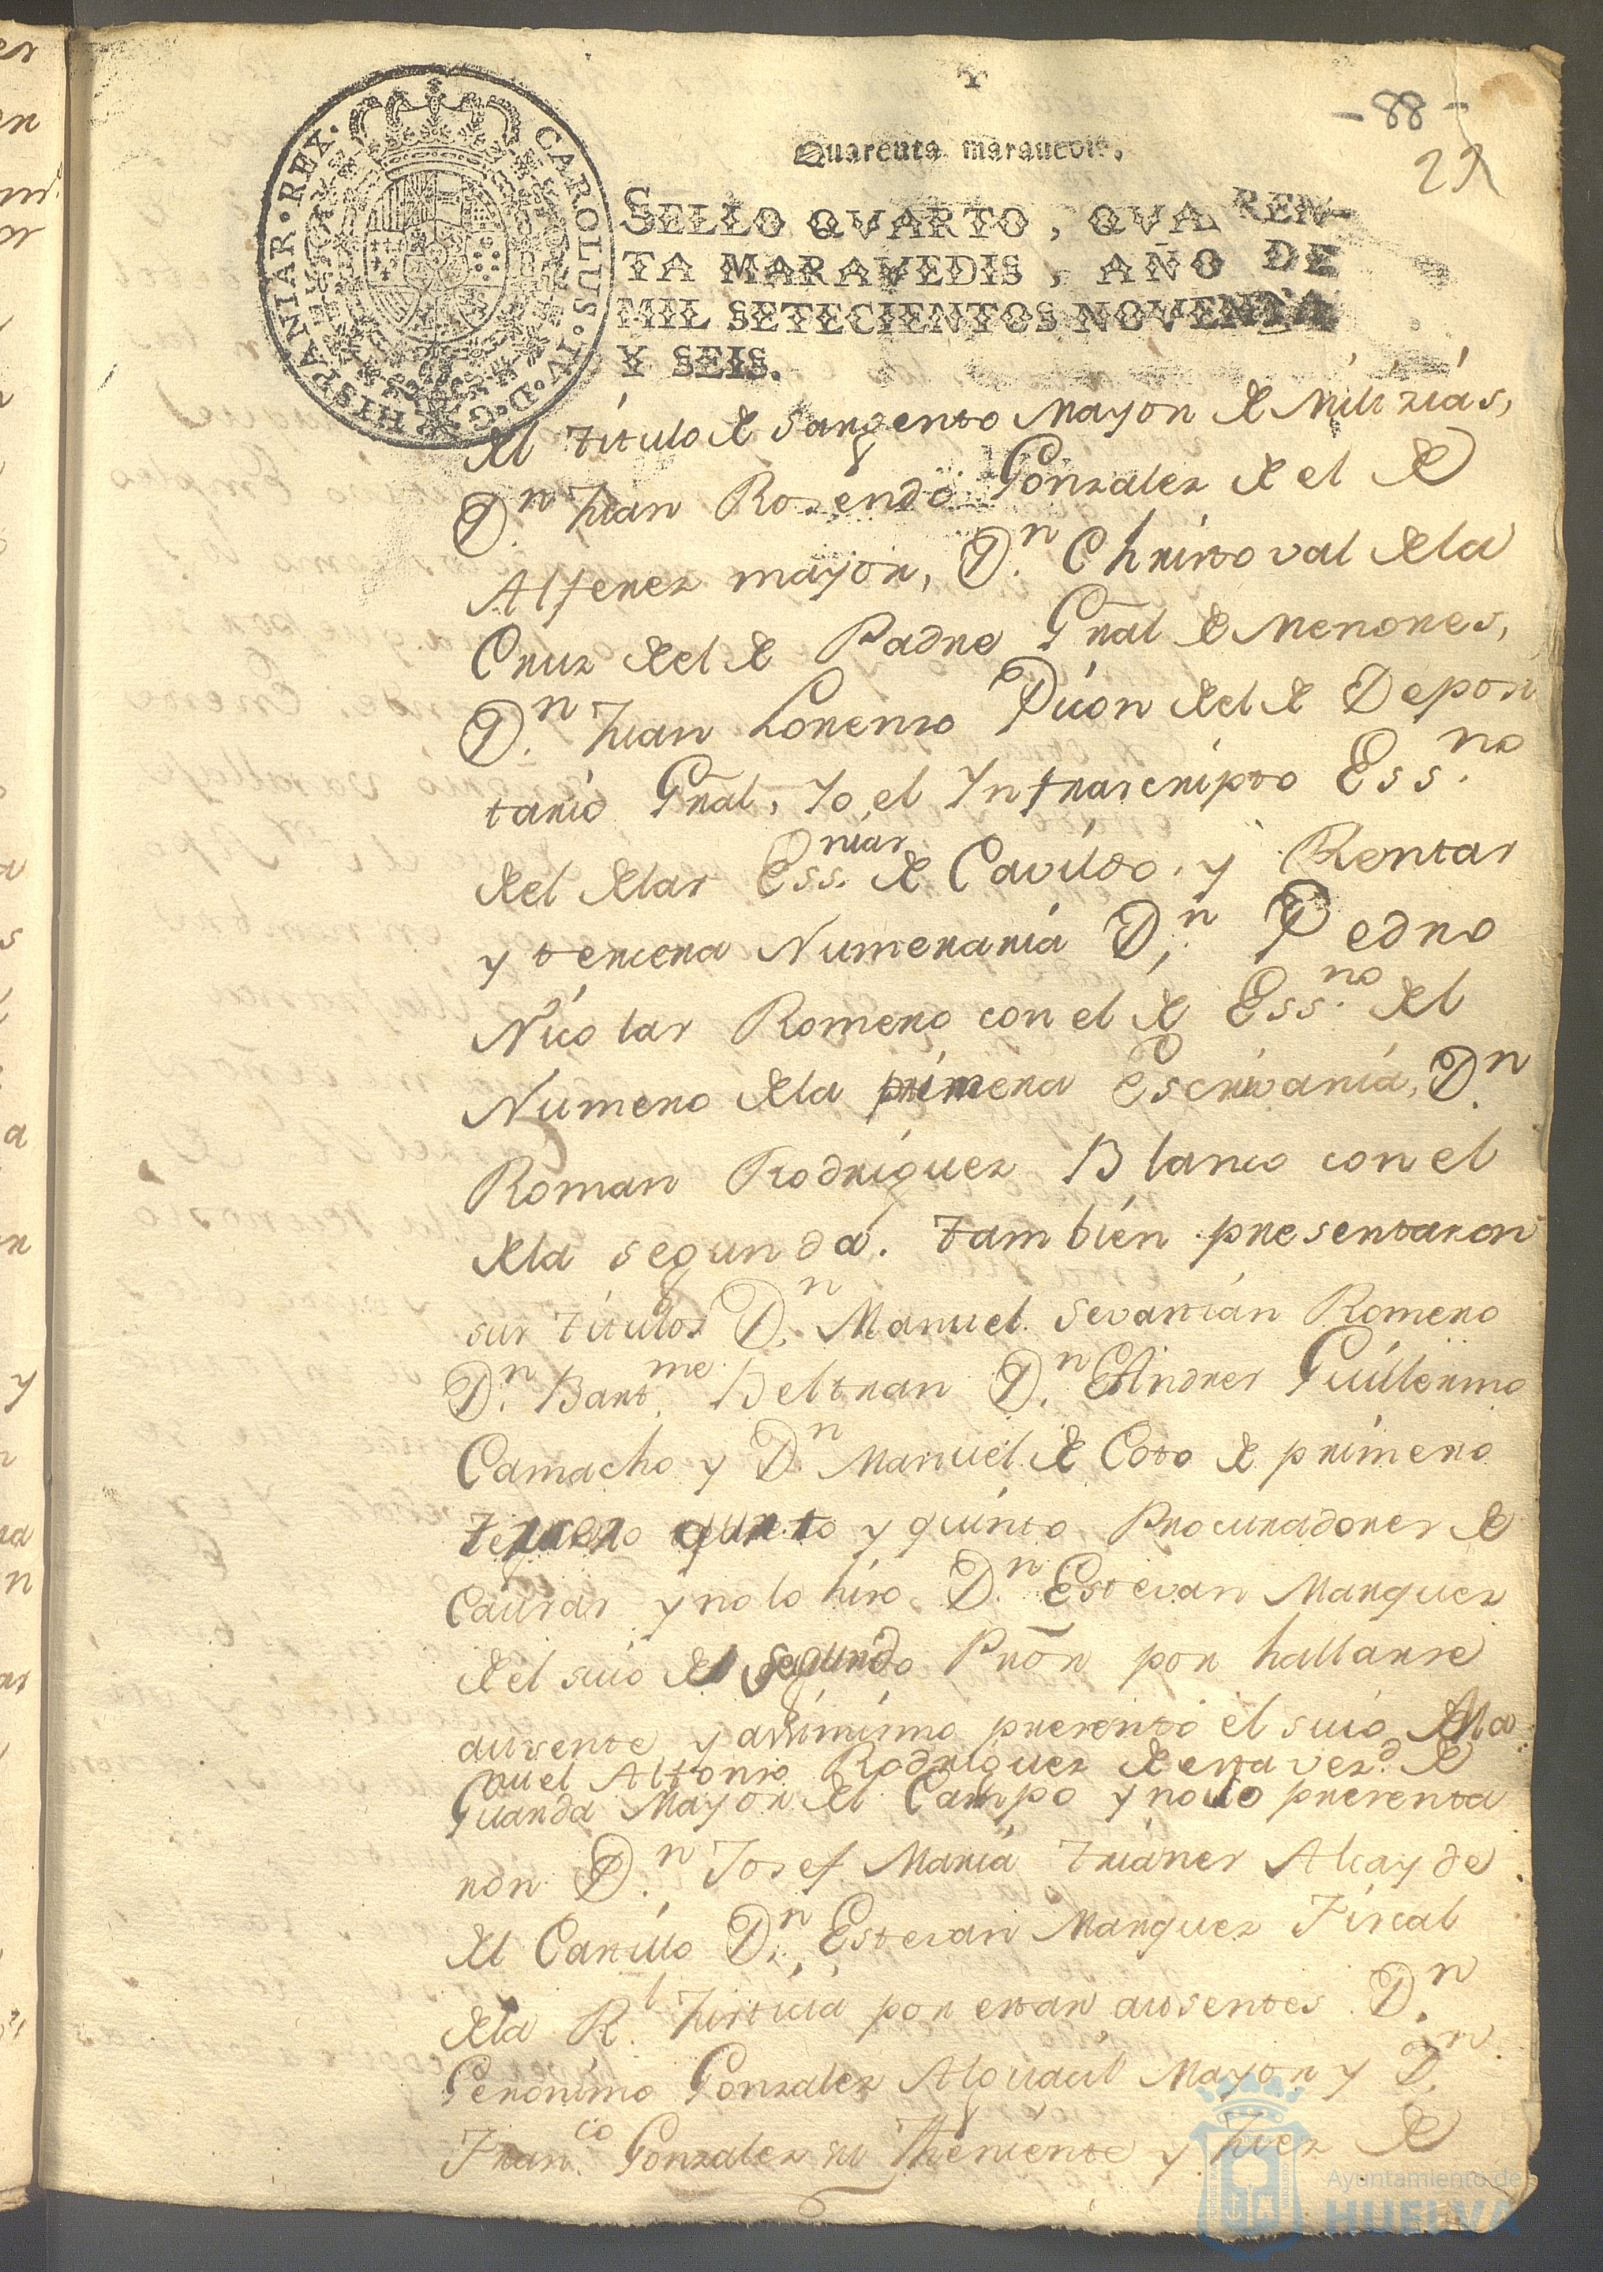 -88-
22
Quarenta maravedis.
SELLO QVARTO, QVAREN-
TA MARAVEDIS, AÑO DE
MIL SETECIENTOS NOVENTA
Y SEIS.
CAROLUS·IV·D·G·HISPANIAR·REX·
del titulo de Sargento Mayor de Milizias,
Dn. Juan Rosendo Gonzalez de el de
Alferez mayor, Dn. Christoval dela
Cruz del de Padre Gñal de Menores,
Dn. Juan Lorenso Picon del de Deposi
tario Gñal, Yo el Infrascripto Essno.
del delas Essnias. de Cavildo, y Rentas
y tercera Numeraria Dn. Pedro
Nicolas Romero con el de Essno. del
Numero dela primera Escrivania, Dn.
Roman Rodriguez Blanco con el
dela segunda. Tambien presentaron
sus titulos Dn. Manuel Sevastian Romero
Dn. Bartme. Beltran Dn. Andres Guillermo
Camacho y Dn. Manuel de Coto de primero
tercero quarto y quinto Procuradores de
Causas y no lo hiso Dn. Estevan Marquez
del suio de segundo Prõr por hallarse
ausente y asimismo presentó el suio Ma
nuel Alfonso Rodriguez de esta vezd. de
Guarda Mayor del Campo y no lo presenta
ron Dn. Josef Maria Trianes Alcayde
del Castillo Dn. Estevan Marquez Fiscal
dela Rl. Justicia por estar ausentes Dn.
Geronimo Gonzalez Alguacil Mayor y Dn.
Franco. Gonzalez su Theniente y Juez de
Ayuntamiento de
HUELVA